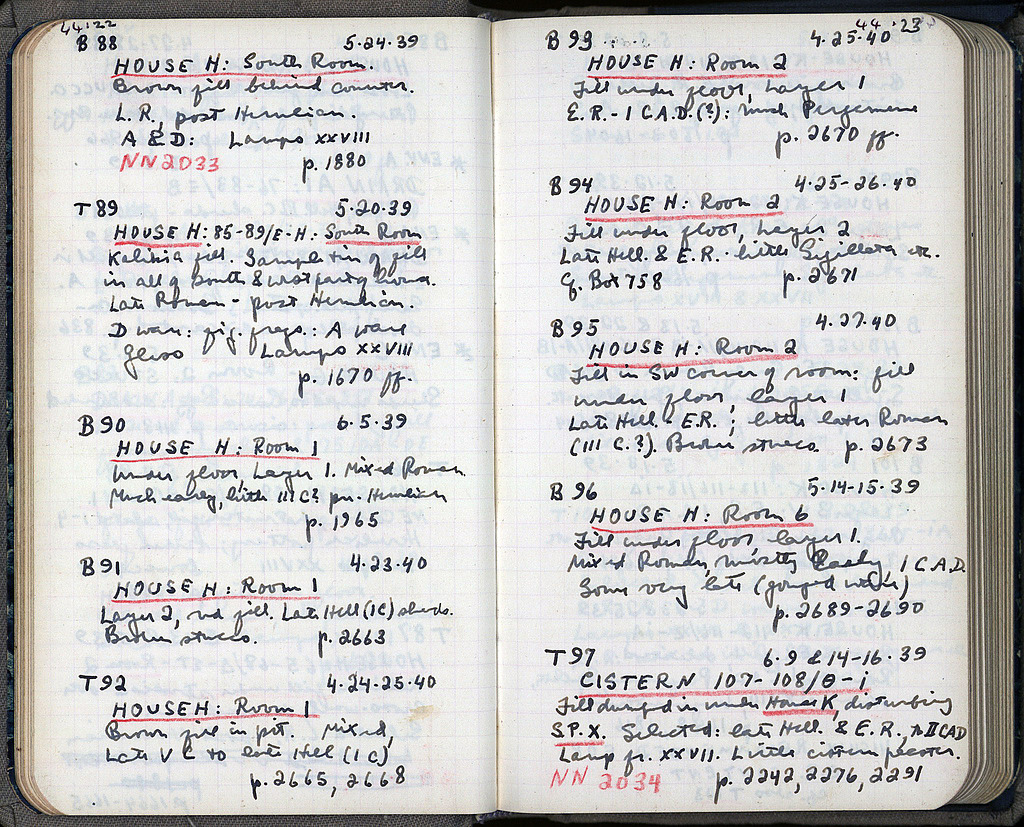 44:22
B 88 5-24-39
HOUSE H: South Room
Brown fill behind counter.
L.R., post Herulian.
A & D: Lamps XXVIII
NN 2033 p. 1880
T 89 5-20-39
HOUSE H: 85-89/E-H: South Room
fill. Sample tin of fill
in all of South & west part of house.
Late Roman - post Herulian.
D ware: fig. frags.: A ware
Glass Lamps XXVIII
p. 1670 ff.
B 90 6-5-39
HOUSE H: Room 1
Under floor, Layer 1. Mixed Roman
Much early, little III C? pre-Herulian
p. 1965
B 91 4-23-40
HOUSE H: Room 1
Layer 2, red fill. Late Hell (I C) sherds.
Brown stucco. p. 2663
T 92 4-24-25-40
HOUSE H: Room 1
Brown fill in pit. Mixed,
Late V C to late Hell (I C)
p. 2665, 2668
44:23
B 93 4-25-40
HOUSE H: Room 2
Fill under floor, Layer 1
E.R. - I C.A.D. (?): much Pergamene
p. 2670 ff.
B 94 4-25-26-40
HOUSE H: Room 2
Fill under floor, Layer 2
Late Hell. & E.R. - little Sigillata etc.
Cf. Box 758 p. 2671
B 95 4-27-40
HOUSE H: Room 2
Fill in SW corner of room: fill
under floor, layer 1
Late Hell. - E.R.; little later Roman
(III C.?). Brown stucco. p. 2673
B 96 5-14-15-39
HOUSE H: Room 6
Fill under floor layer 1.
Mixed Roman, mostly Early, I C.A.D.
Some very late (gouged ware)
p. 2689-2690
T 97 6-9 & 14-16-39
CISTERN 107-108/Θ-i
Fill dumped in under House K, disturbing
S.P.X. Selected: late Hell. & E.R., to II C AD
Lamp fr. XXVII. Little cistern plaster.
NN 2034 p. 2242, 2276, 2291